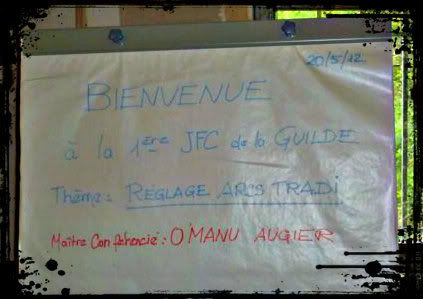 20/5/12
BIENVENUE
à la 1ère JFC de la GUILDE
Thème : RÉGLAGE ARCS TRADI
Maître Conférencié : O'MANU AUGIER